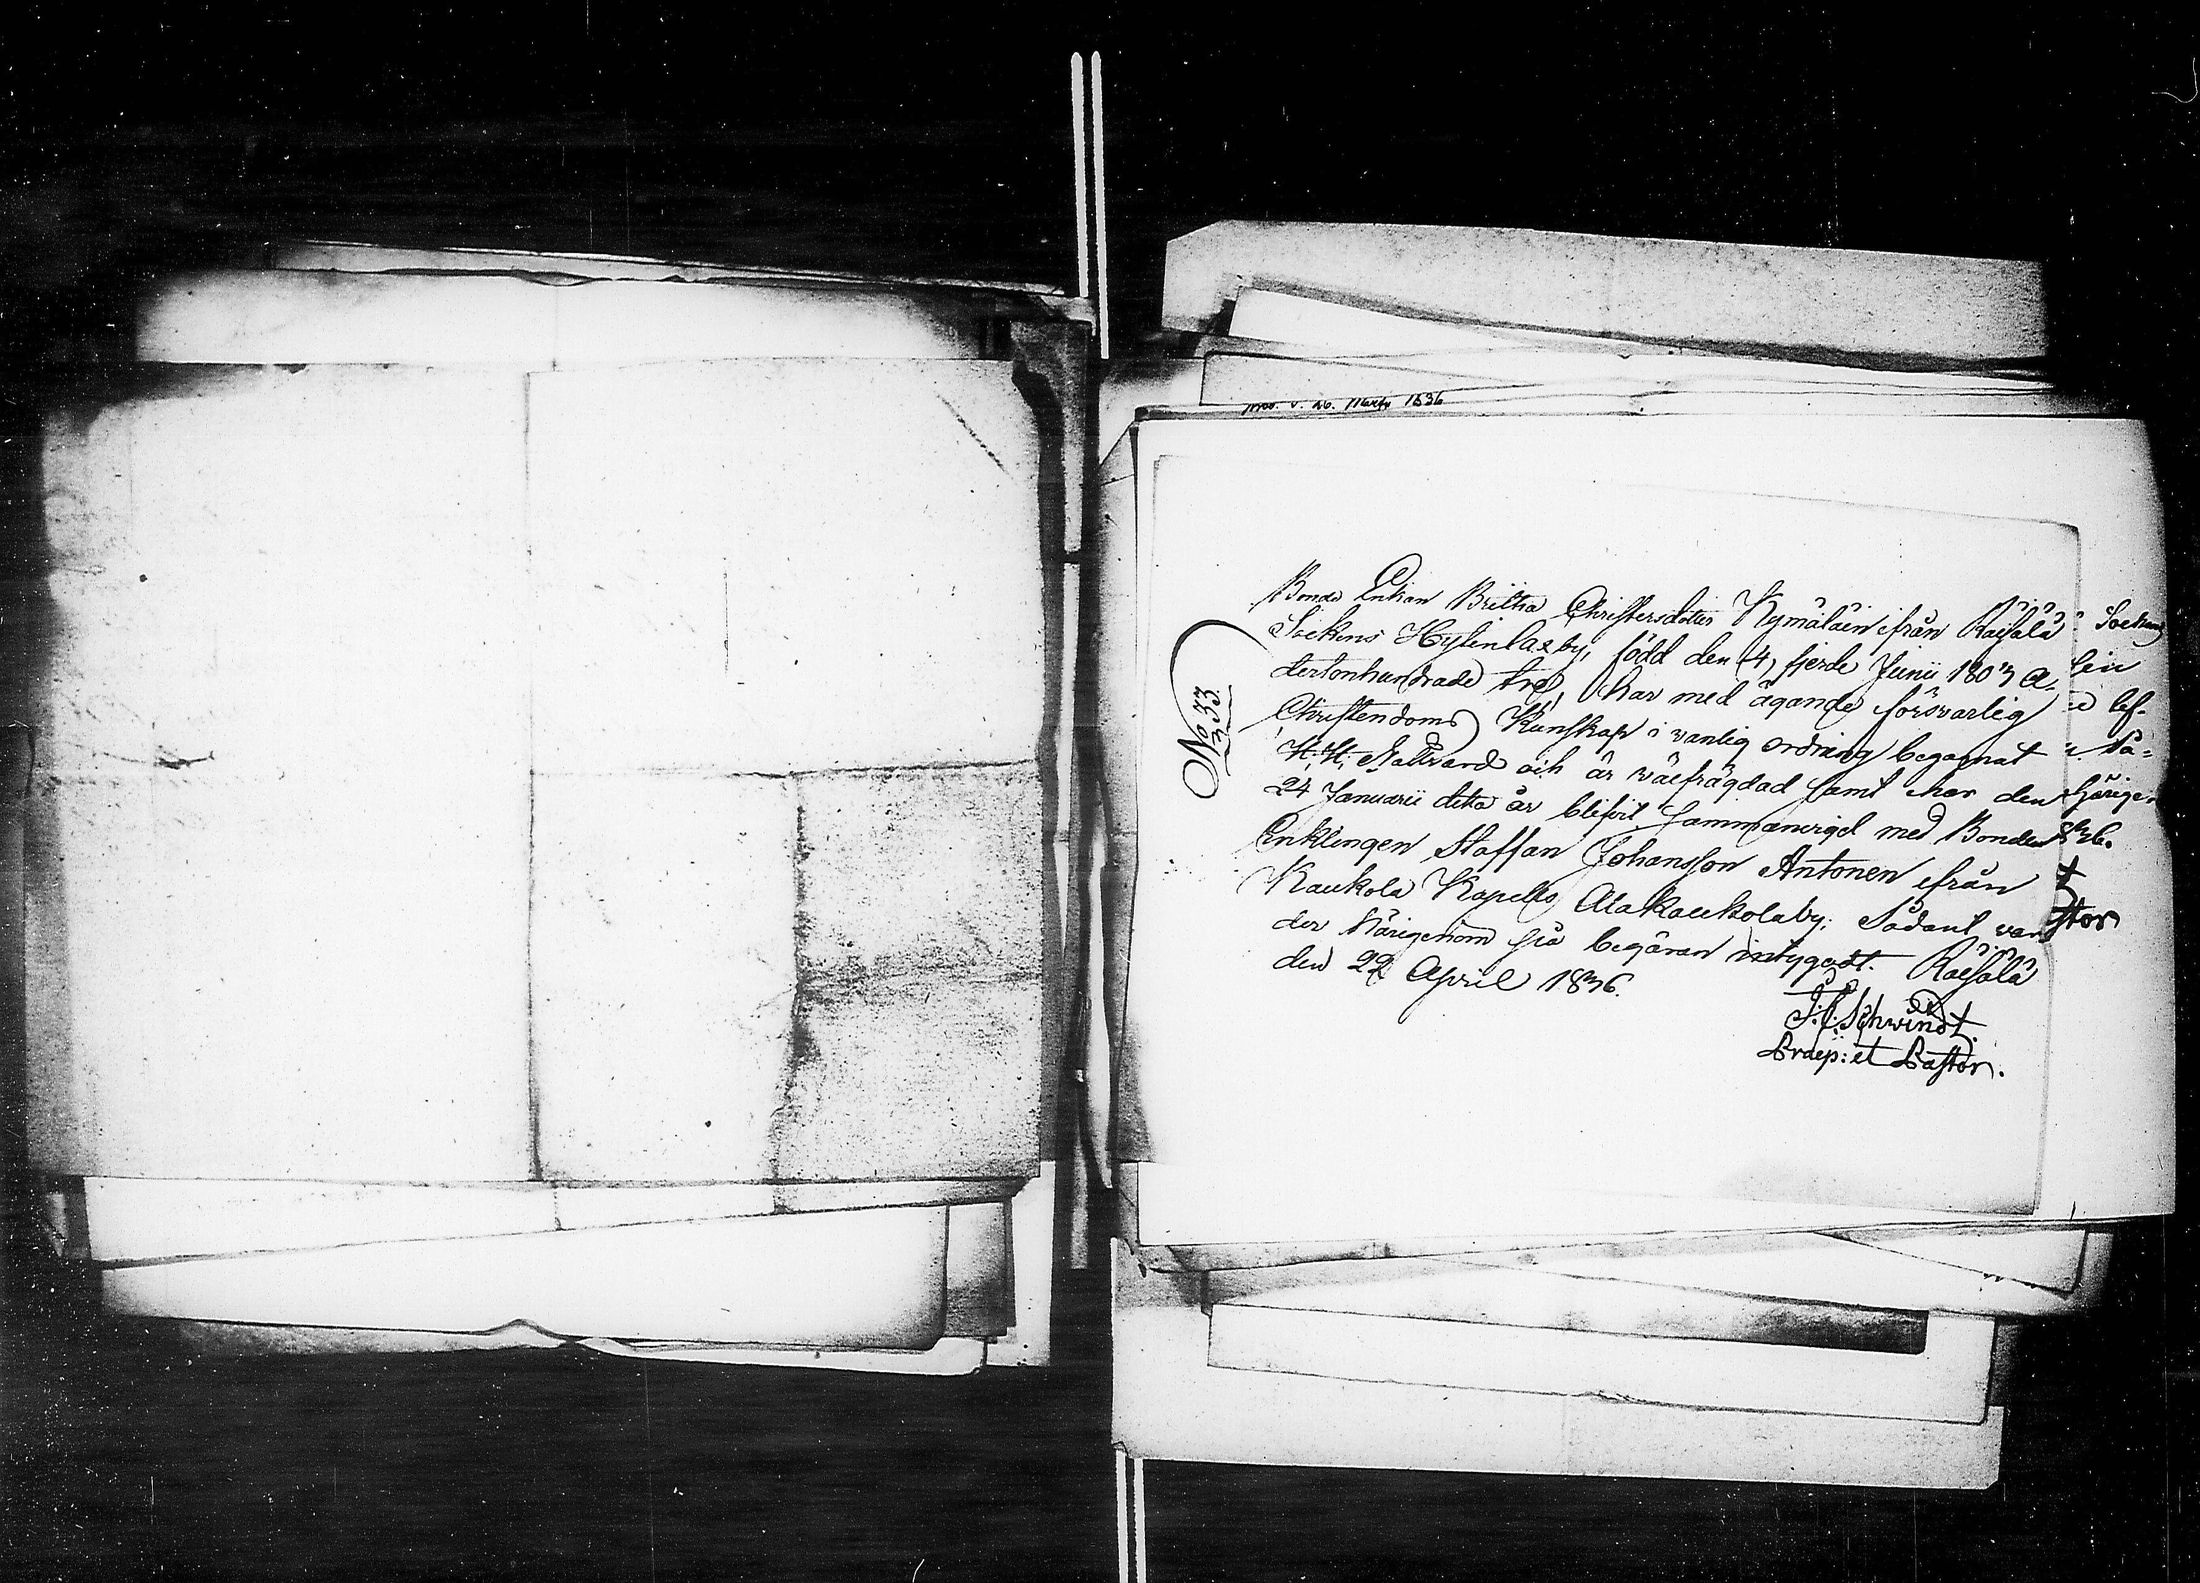 1836
No 33.
Bonde Enkan Britha Christersdotter Kymäläin ifrån Räisälä
Sockens Hytinla by, född den (4) fjerde Junii 1803 A-
dertonhundrade tre, har med ägande försvarlig
Christendoms Kunskap i vanlig ordning begagnat
H. H. Nattvard och är välfrägdad samt har den
24 Januarii detta år blifvit Sammanvigd med Bonden
Enklingen Staffan Johansson Antonen ifrån
Kaukola Kapells Alakaukola by; Sådant var
der härigenom på begäran intygadt. Räisälä
den 22 April 1836.
Schwindt.
Praep: et Pastor.
Socken
lef-
Så-
härige
836.
stor